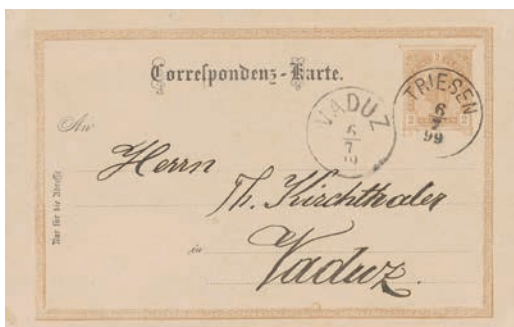 Correspondenz-Karte.
TRIESEN
6
7
99
2 2
VADUZ
6
7
An
Herrn
Th. Kirchthaler
in
Vaduz.
Nur für die Adresse